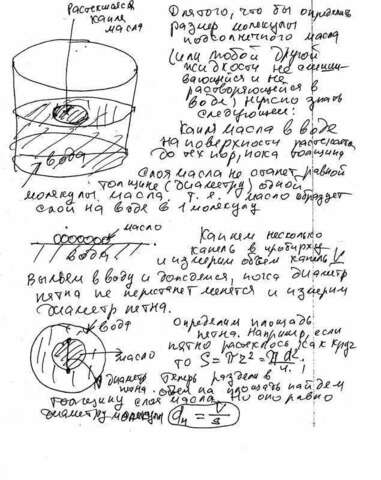 Растекшаяся
капля
масла
Для того, что бы определить
размер молекулы
подсолнечного масла
(или любой другой
жидкости не смеши-
вающейся и не
растворяющейся в
воде) нужно знать
следующее:
Капля масла в воде
на поверхности растекается
до тех пор, пока толщина
слоя масла не станет равной
вода
толщине (диаметру) одной
молекулы масла. Т. е. масло образует
слой на воде в 1 молекулу
масло
вода
Капнем несколько
капель в пробирку
и измерим объем капель V
Выльем в воду и дождемся, пока диаметр
пятна не перестанет менятся и измерим
диаметр пятна.
вода
масло
диаметр
пятна
Определим площадь
пятна. Например, если
пятно растеклось, как круг
то S = πr² = πd²/4.
Теперь разделив
объем на площадь найдем
толщину слоя масла. Но оно равно
диаметру молекулы
dм = V/S